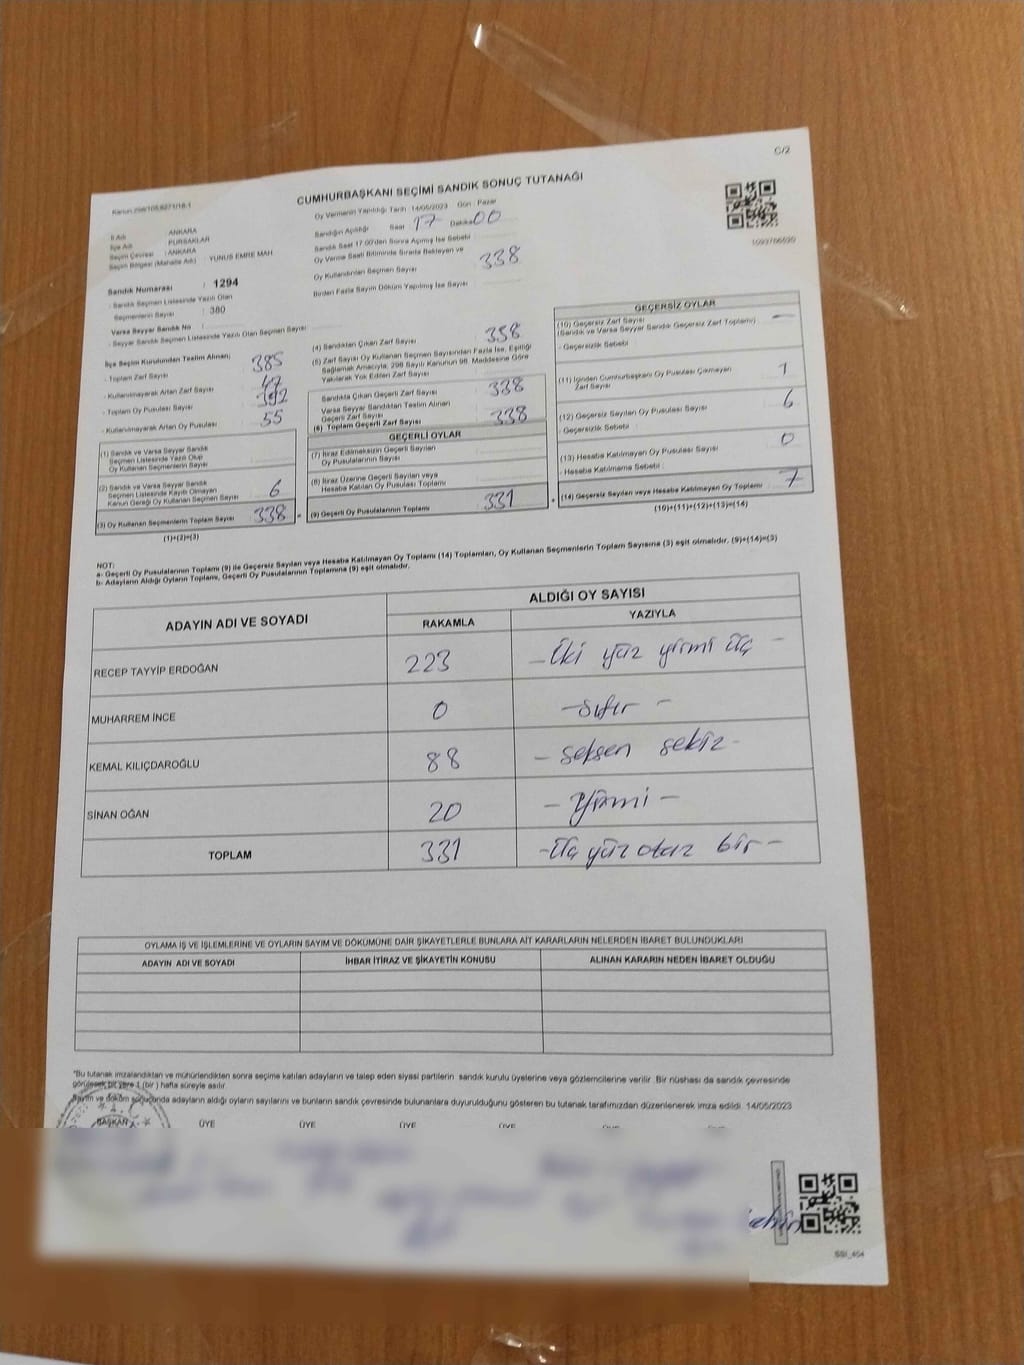 C/2
CUMHURBAŞKANI SEÇİMİ SANDIK SONUÇ TUTANAĞI
Oy Vermenin Yapıldığı Tarih : 14/05/2023 Gün : Pazar
Sandığın Açıldığı Saat 17 Dakika 00
Sandık Saat 17.00'den Sonra Açılmış İse Sebebi
Oy Verme Saati Bitiminde Sırada Bekleyen ve
Oy Kullandırılan Seçmen Sayısı 338
Birden Fazla Sayım Döküm Yapılmış İse Sayısı :
İl Adı : ANKARA
İlçe Adı : PURSAKLAR
Seçim Çevresi : ANKARA
Seçim Bölgesi (Mahalle Adı) : YUNUS EMRE MAH
Sandık Numarası : 1294
- Sandık Seçmen Listesinde Yazılı Olan
Seçmenlerin Sayısı : 380
Varsa Seyyar Sandık No :
- Seyyar Sandık Seçmen Listesinde Yazılı Olan Seçmen Sayısı :
İlçe Seçim Kurulundan Teslim Alınan;
- Toplam Zarf Sayısı 385
- Kullanılmayarak Artan Zarf Sayısı 47
- Toplam Oy Pusulası Sayısı 392
- Kullanılmayarak Artan Oy Pusulası 55
(1) Sandık ve Varsa Seyyar Sandık
Seçmen Listesinde Yazılı Olup
Oy Kullanan Seçmenlerin Sayısı
(2) Sandık ve Varsa Seyyar Sandık
Seçmen Listesinde Kayıtlı Olmayan
Kanun Gereği Oy Kullanan Seçmen Sayısı 6
(3) Oy Kullanan Seçmenlerin Toplam Sayısı 338
(1)+(2)=(3)
(4) Sandıktan Çıkan Zarf Sayısı 338
(5) Zarf Sayısı Oy Kullanan Seçmen Sayısından Fazla İse, Eşitliği
Sağlamak Amacıyla, 298 Sayılı Kanunun 98. Maddesine Göre
Yakılarak Yok Edilen Zarf Sayısı
Sandıkta Çıkan Geçerli Zarf Sayısı 338
Varsa Seyyar Sandıktan Teslim Alınan
Geçerli Zarf Sayısı
(6) Toplam Geçerli Zarf Sayısı 338
GEÇERLİ OYLAR
(7) İtiraz Edilmeksizin Geçerli Sayılan
Oy Pusulalarının Sayısı
(8) İtiraz Üzerine Geçerli Sayılan veya
Hesaba Katılan Oy Pusulası Toplamı
(9) Geçerli Oy Pusulalarının Toplamı 331
GEÇERSİZ OYLAR
(10) Geçersiz Zarf Sayısı
(Sandık ve Varsa Seyyar Sandık Geçersiz Zarf Toplamı) —
- Geçersizlik Sebebi
(11) İçinden Cumhurbaşkanı Oy Pusulası Çıkmayan
Zarf Sayısı 1
(12) Geçersiz Sayılan Oy Pusulası Sayısı 6
- Geçersizlik Sebebi
(13) Hesaba Katılmayan Oy Pusulası Sayısı 0
- Hesaba Katılmama Sebebi :
(14) Geçersiz Sayılan veya Hesaba Katılmayan Oy Toplamı 7
(10)+(11)+(12)+(13)=(14)
NOT:
a- Geçerli Oy Pusulalarının Toplamı (9) ile Geçersiz Sayılan veya Hesaba Katılmayan Oy Toplamı (14) Toplamları, Oy Kullanan Seçmenlerin Toplam Sayısına (3) eşit olmalıdır. (9)+(14)=(3)
b- Adayların Aldığı Oyların Toplamı, Geçerli Oy Pusulalarının Toplamına (9) eşit olmalıdır.
ADAYIN ADI VE SOYADI
ALDIĞI OY SAYISI
RAKAMLA YAZIYLA
RECEP TAYYİP ERDOĞAN 223 - İki yüz yirmi üç -
MUHARREM İNCE 0 - sıfır -
KEMAL KILIÇDAROĞLU 88 - seksen sekiz -
SİNAN OĞAN 20 - Yirmi -
TOPLAM 331 - üç yüz otuz bir -
OYLAMA İŞ VE İŞLEMLERİNE VE OYLARIN SAYIM VE DÖKÜMÜNE DAİR ŞİKAYETLERLE BUNLARA AİT KARARLARIN NELERDEN İBARET BULUNDUKLARI
ADAYIN ADI VE SOYADI İHBAR İTİRAZ VE ŞİKAYETİN KONUSU ALINAN KARARIN NEDEN İBARET OLDUĞU
*Bu tutanak imzalandıktan ve mühürlendikten sonra seçime katılan adayların ve talep eden siyasi partilerin sandık kurulu üyelerine veya gözlemcilerine verilir. Bir nüshası da sandık çevresinde
görülecek bir yere 1 (bir) hafta süreyle asılır.
Sayım ve döküm sonucunda adayların aldığı oyların sayılarını ve bunların sandık çevresinde bulunanlara duyurulduğunu gösteren bu tutanak tarafımızdan düzenlenerek imza edildi. 14/05/2023
BAŞKAN ÜYE ÜYE ÜYE